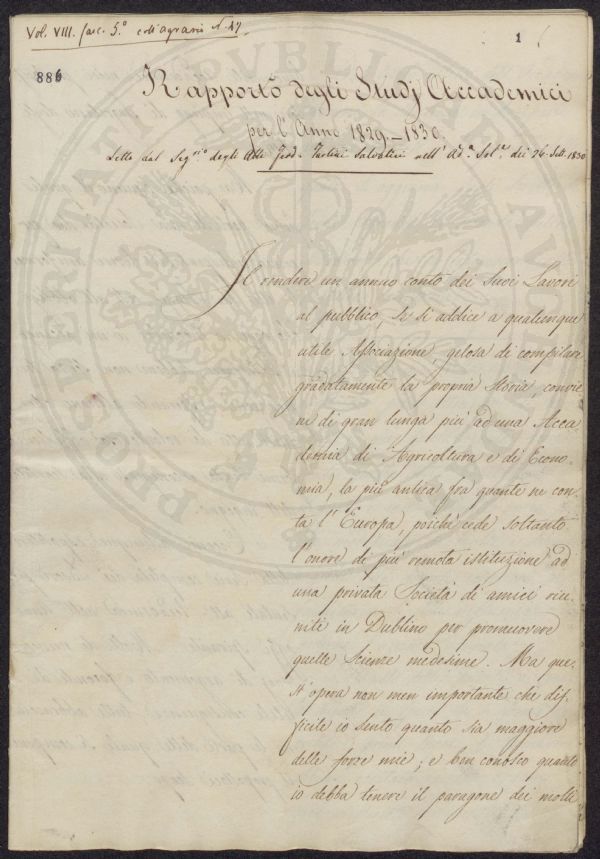 Vol. VIII. fasc. 5.° coll' agrario N. 47.
1
886
Rapporto degli Studj Accademici
per l'Anno 1829.-1830.
Letto dal Seg.rio degli Atti Ferd. Tartini Salvatici nell' Ad.a Sol.e dei 26. Sett. 1830
Il rendere un annuo conto dei suoi Lavori
al pubblico, se si addice a qualunque
utile Associazione, gelosa di compilare
gradatamente la propria Storia, convie
ne di gran lunga più ad una Acca-
demia di Agricoltura e di Econo-
mia, la più antica fra quante ne con-
ta l'Europa, poichè cede soltanto
l'onore di più remota istituzione ad
una privata Società di amici riu-
niti in Dublino per promuovere
quelle Scienze medesime. Ma que-
st'opera non men importante che dif-
ficile io sento quanto sia maggiore
delle forze mie; e ben conosco quanto
io debba temere il paragone dei molti
PROSPERITATI PUBLICAE AUGENDAE